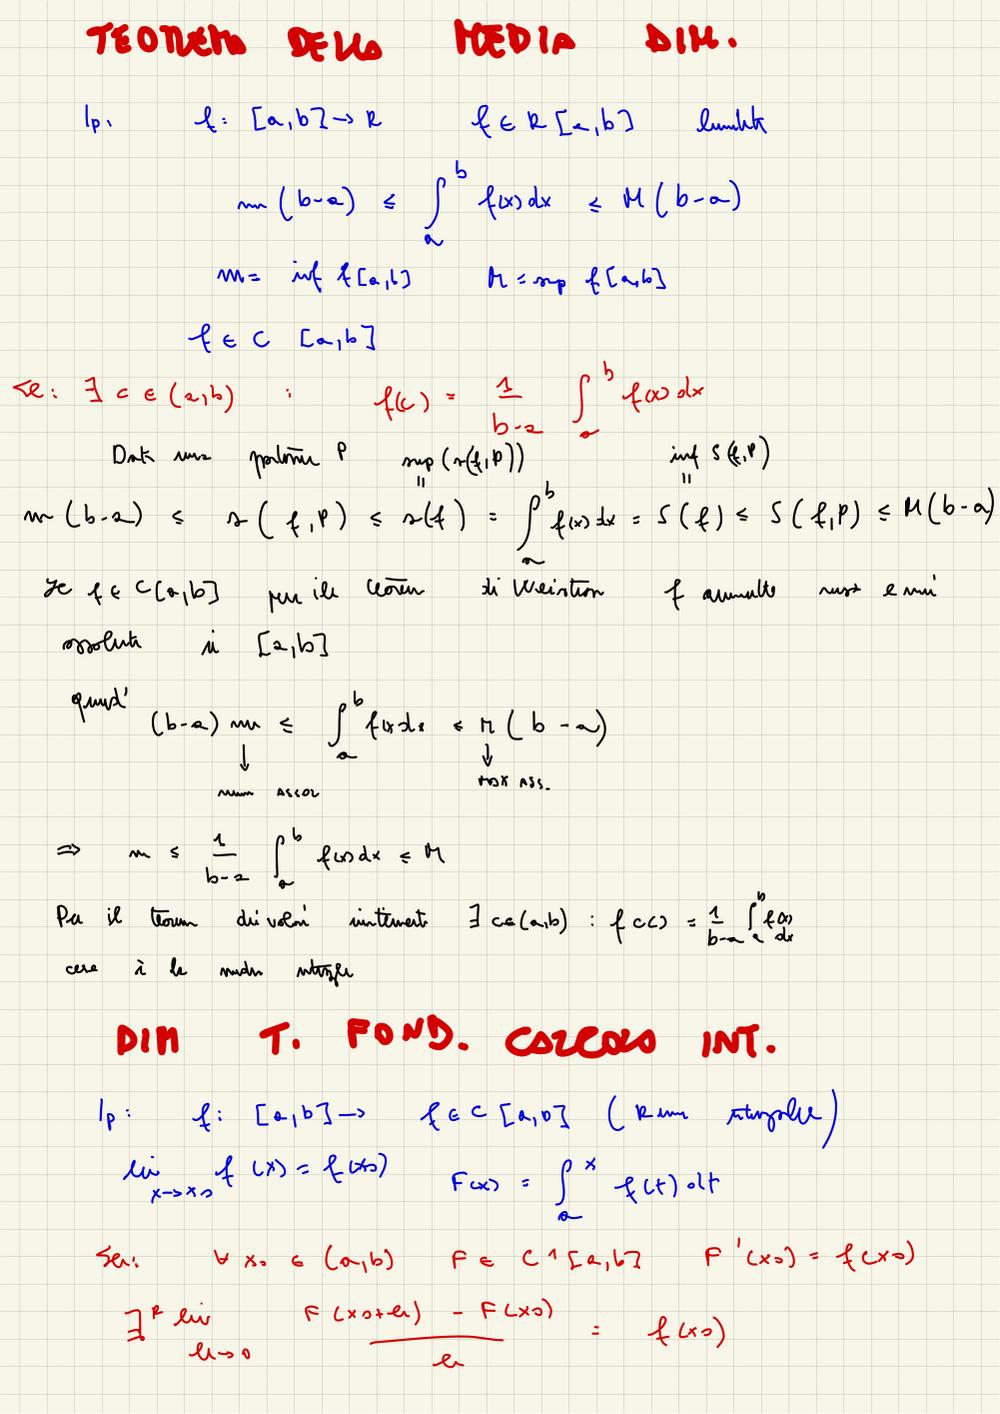 TEOREMA DELLA MEDIA DIM.
Ip. f: [a,b] → R f ∈ R [a,b] limitata
m (b-a) ≤ ∫_a^b f(x) dx ≤ M (b-a)
m = inf f [a,b] M = sup f [a,b]
f ∈ C [a,b]
Te: ∃ c ∈ (a,b) : f(c) = 1/(b-a) ∫_a^b f(x) dx
Data una partizione P sup (s(f,P)) inf S(f,P)
m (b-a) ≤ s (f,P) ≤ s(f) = ∫_a^b f(x) dx = S(f) ≤ S(f,P) ≤ M (b-a)
Se f ∈ C[a,b] per il teorema di f ammette max e min
assoluti in [a,b]
quindi
(b-a) m ≤ ∫_a^b f(x) dx ≤ M (b-a)
↓ ↓
ASSOL MAX ASS.
⇒ m ≤ 1/(b-a) ∫_a^b f(x) dx ≤ M
Per il teorema dei valori intermedi ∃ c∈(a,b) : f(c) = 1/(b-a) ∫_a^b f(x) dx
è la media integrale
DIM T. FOND. CALCOLO INT.
Ip: f: [a,b] → f ∈ C [a,b] (R integrabile)
lim x→x0 f(x) = f(x0) F(x) = ∫_a^x f(t) dt
∀ x0 ∈ (a,b) F ∈ C^1 [a,b] F'(x0) = f(x0)
∃ lim h→0 (F(x0+h) - F(x0))/h = f(x0)